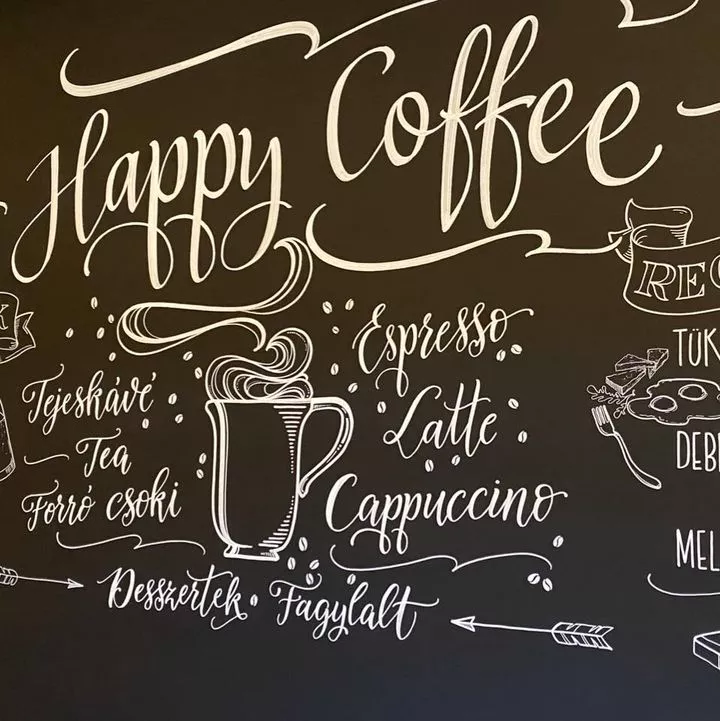 Happy Coffee
Tejeskávé
Tea
Forró csoki
Espresso
Latte
Cappuccino
Desszertek. Fagylalt